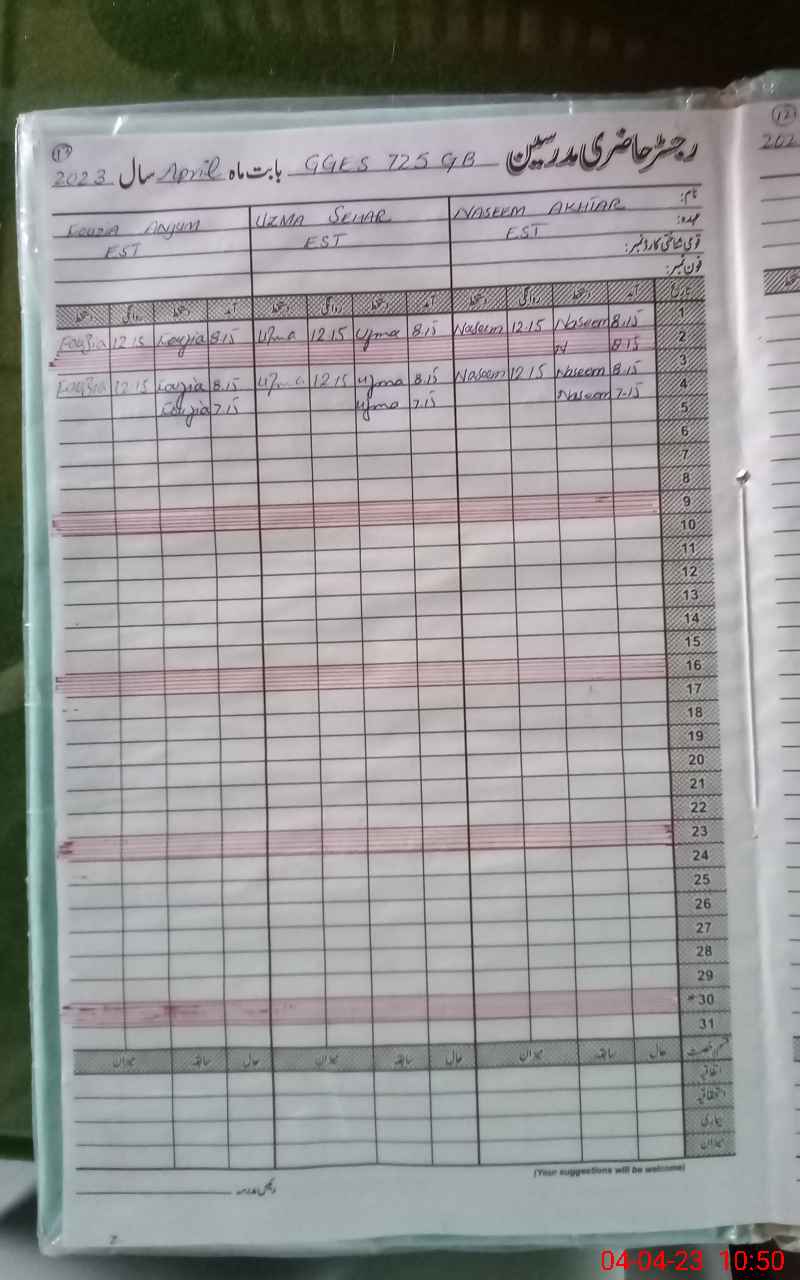 رجسٹر حاضری مدرسین GGES 725 GB بابت ماہ April سال 2023
17
12
202
نام: NASEEM AKHTAR UZMA SEHAR Fouzia ANJUM
عہدہ: EST EST EST
قومی شناختی کارڈ نمبر:
فون نمبر:
تاریخ آمد دستخط روانگی دستخط آمد دستخط روانگی دستخط آمد دستخط روانگی دستخط
1 8.15 Naseem 12.15 Naseem 8.15 Uzma 12.15 Uzma 8.15 Fouzia 12.15 Fouzia
2 8.15 N
3 8.15 Naseem 12.15 Naseem 8.15 Uzma 12.15 Uzma 8.15 Fouzia 12.15 Fouzia
4 7.15 Naseem 7.15 Uzma 7.15 Fouzia
5
6
7
8
9
10
11
12
13
14
15
16
17
18
19
20
21
22
23
24
25
26
27
28
29
30
31
قسم رخصت حال سابقہ میزان حال سابقہ میزان حال سابقہ میزان
اتفاقیہ
استحقاقیہ
بیماری
میزان
(Your suggestions will be welcome)
رئیس مدرسہ
04-04-23 10:50